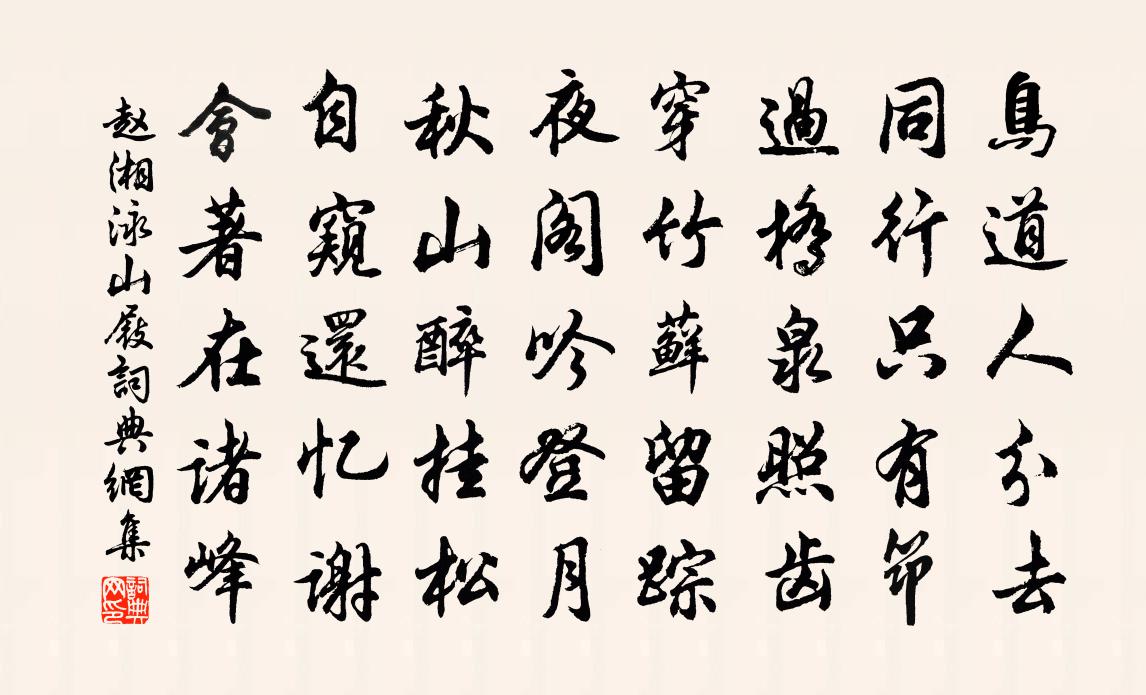 鳥道人分去
同行只有筇
過橋泉照齿
穿竹蘚留踪
夜阁吟登月
秋山醉挂松
自窺還忆谢
會著在诸峰
赵湘泳山屐詞典網集
詞典网印